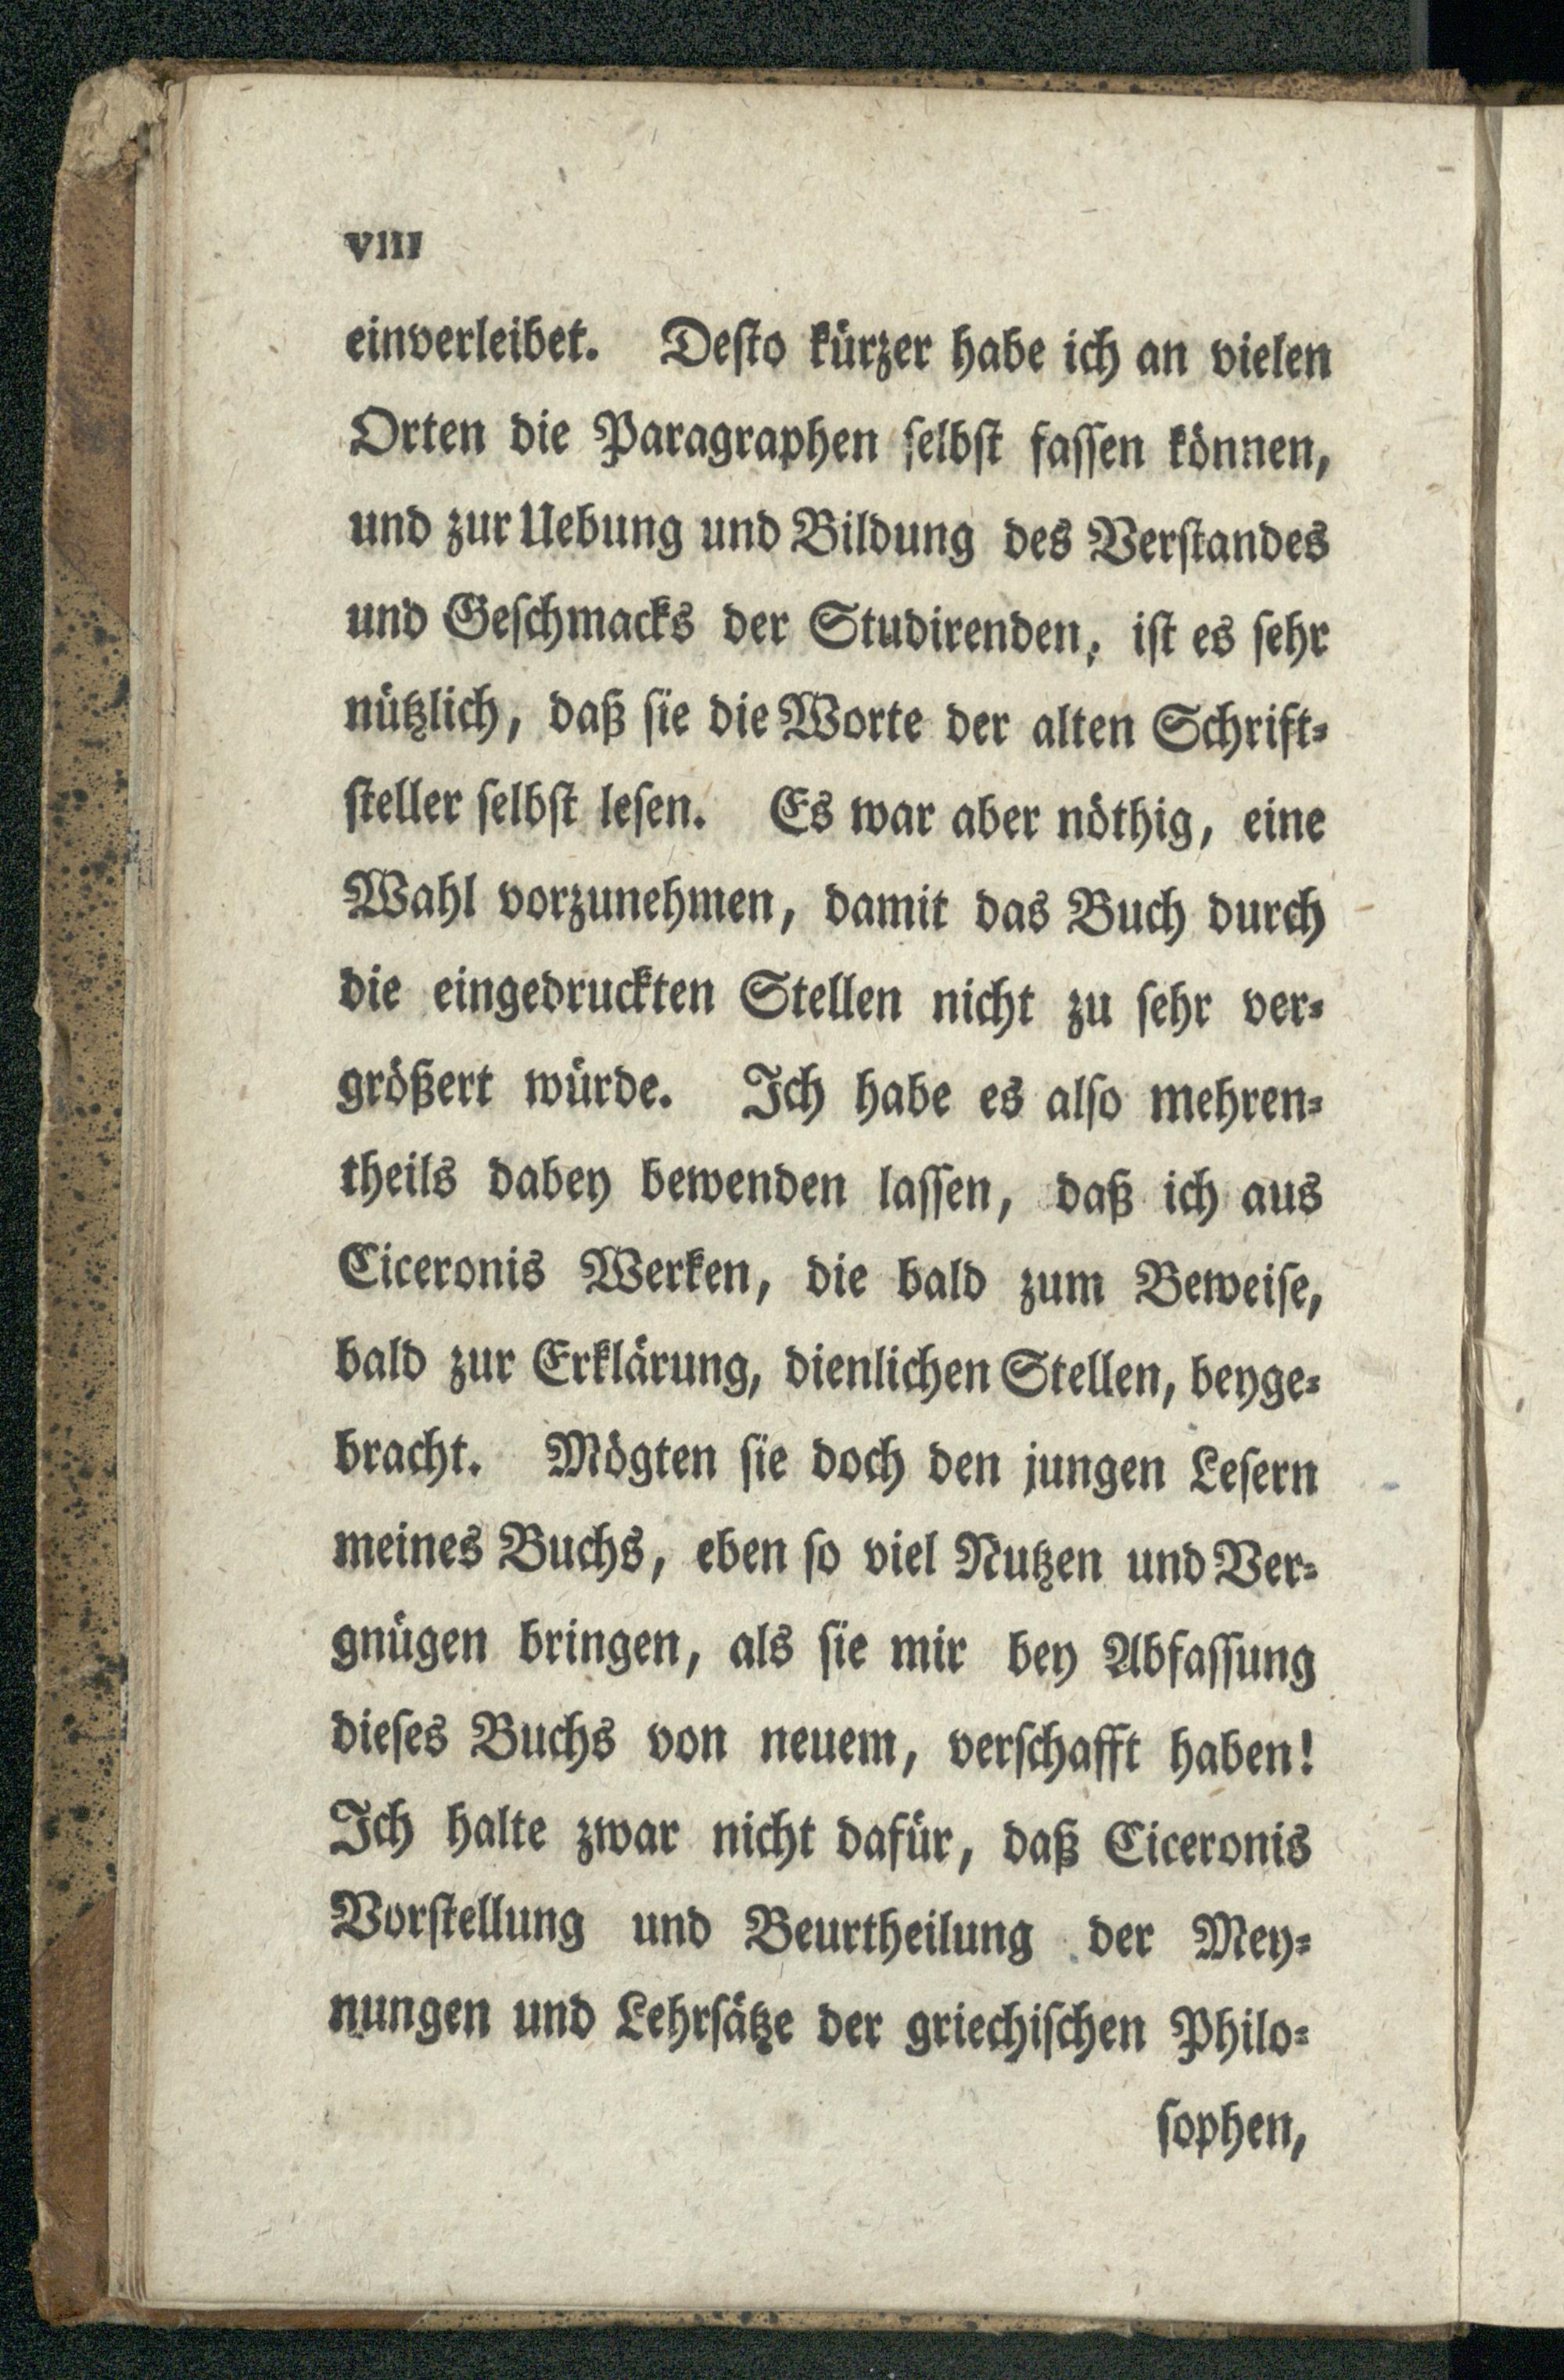 VIII
einverleibet. Deſto kürzer habe ich an vielen
Orten die Paragraphen ſelbſt faſſen können,
und zur Uebung und Bildung des Verſtandes
und Geſchmacks der Studirenden, iſt es ſehr
nützlich, daß ſie die Worte der alten Schrift-
ſteller ſelbſt leſen. Es war aber nöthig, eine
Wahl vorzunehmen, damit das Buch durch
die eingedruckten Stellen nicht zu ſehr ver-
größert würde. Ich habe es alſo mehren-
theils dabey bewenden laſſen, daß ich aus
Ciceronis Werken, die bald zum Beweiſe,
bald zur Erklärung, dienlichen Stellen, beyge-
bracht. Mögten ſie doch den jungen Leſern
meines Buchs, eben ſo viel Nutzen und Ver-
gnügen bringen, als ſie mir bey Abfaſſung
dieſes Buchs von neuem, verſchafft haben!
Ich halte zwar nicht dafür, daß Ciceronis
Vorſtellung und Beurtheilung der Mey-
nungen und Lehrſätze der griechiſchen Philo-
ſophen,